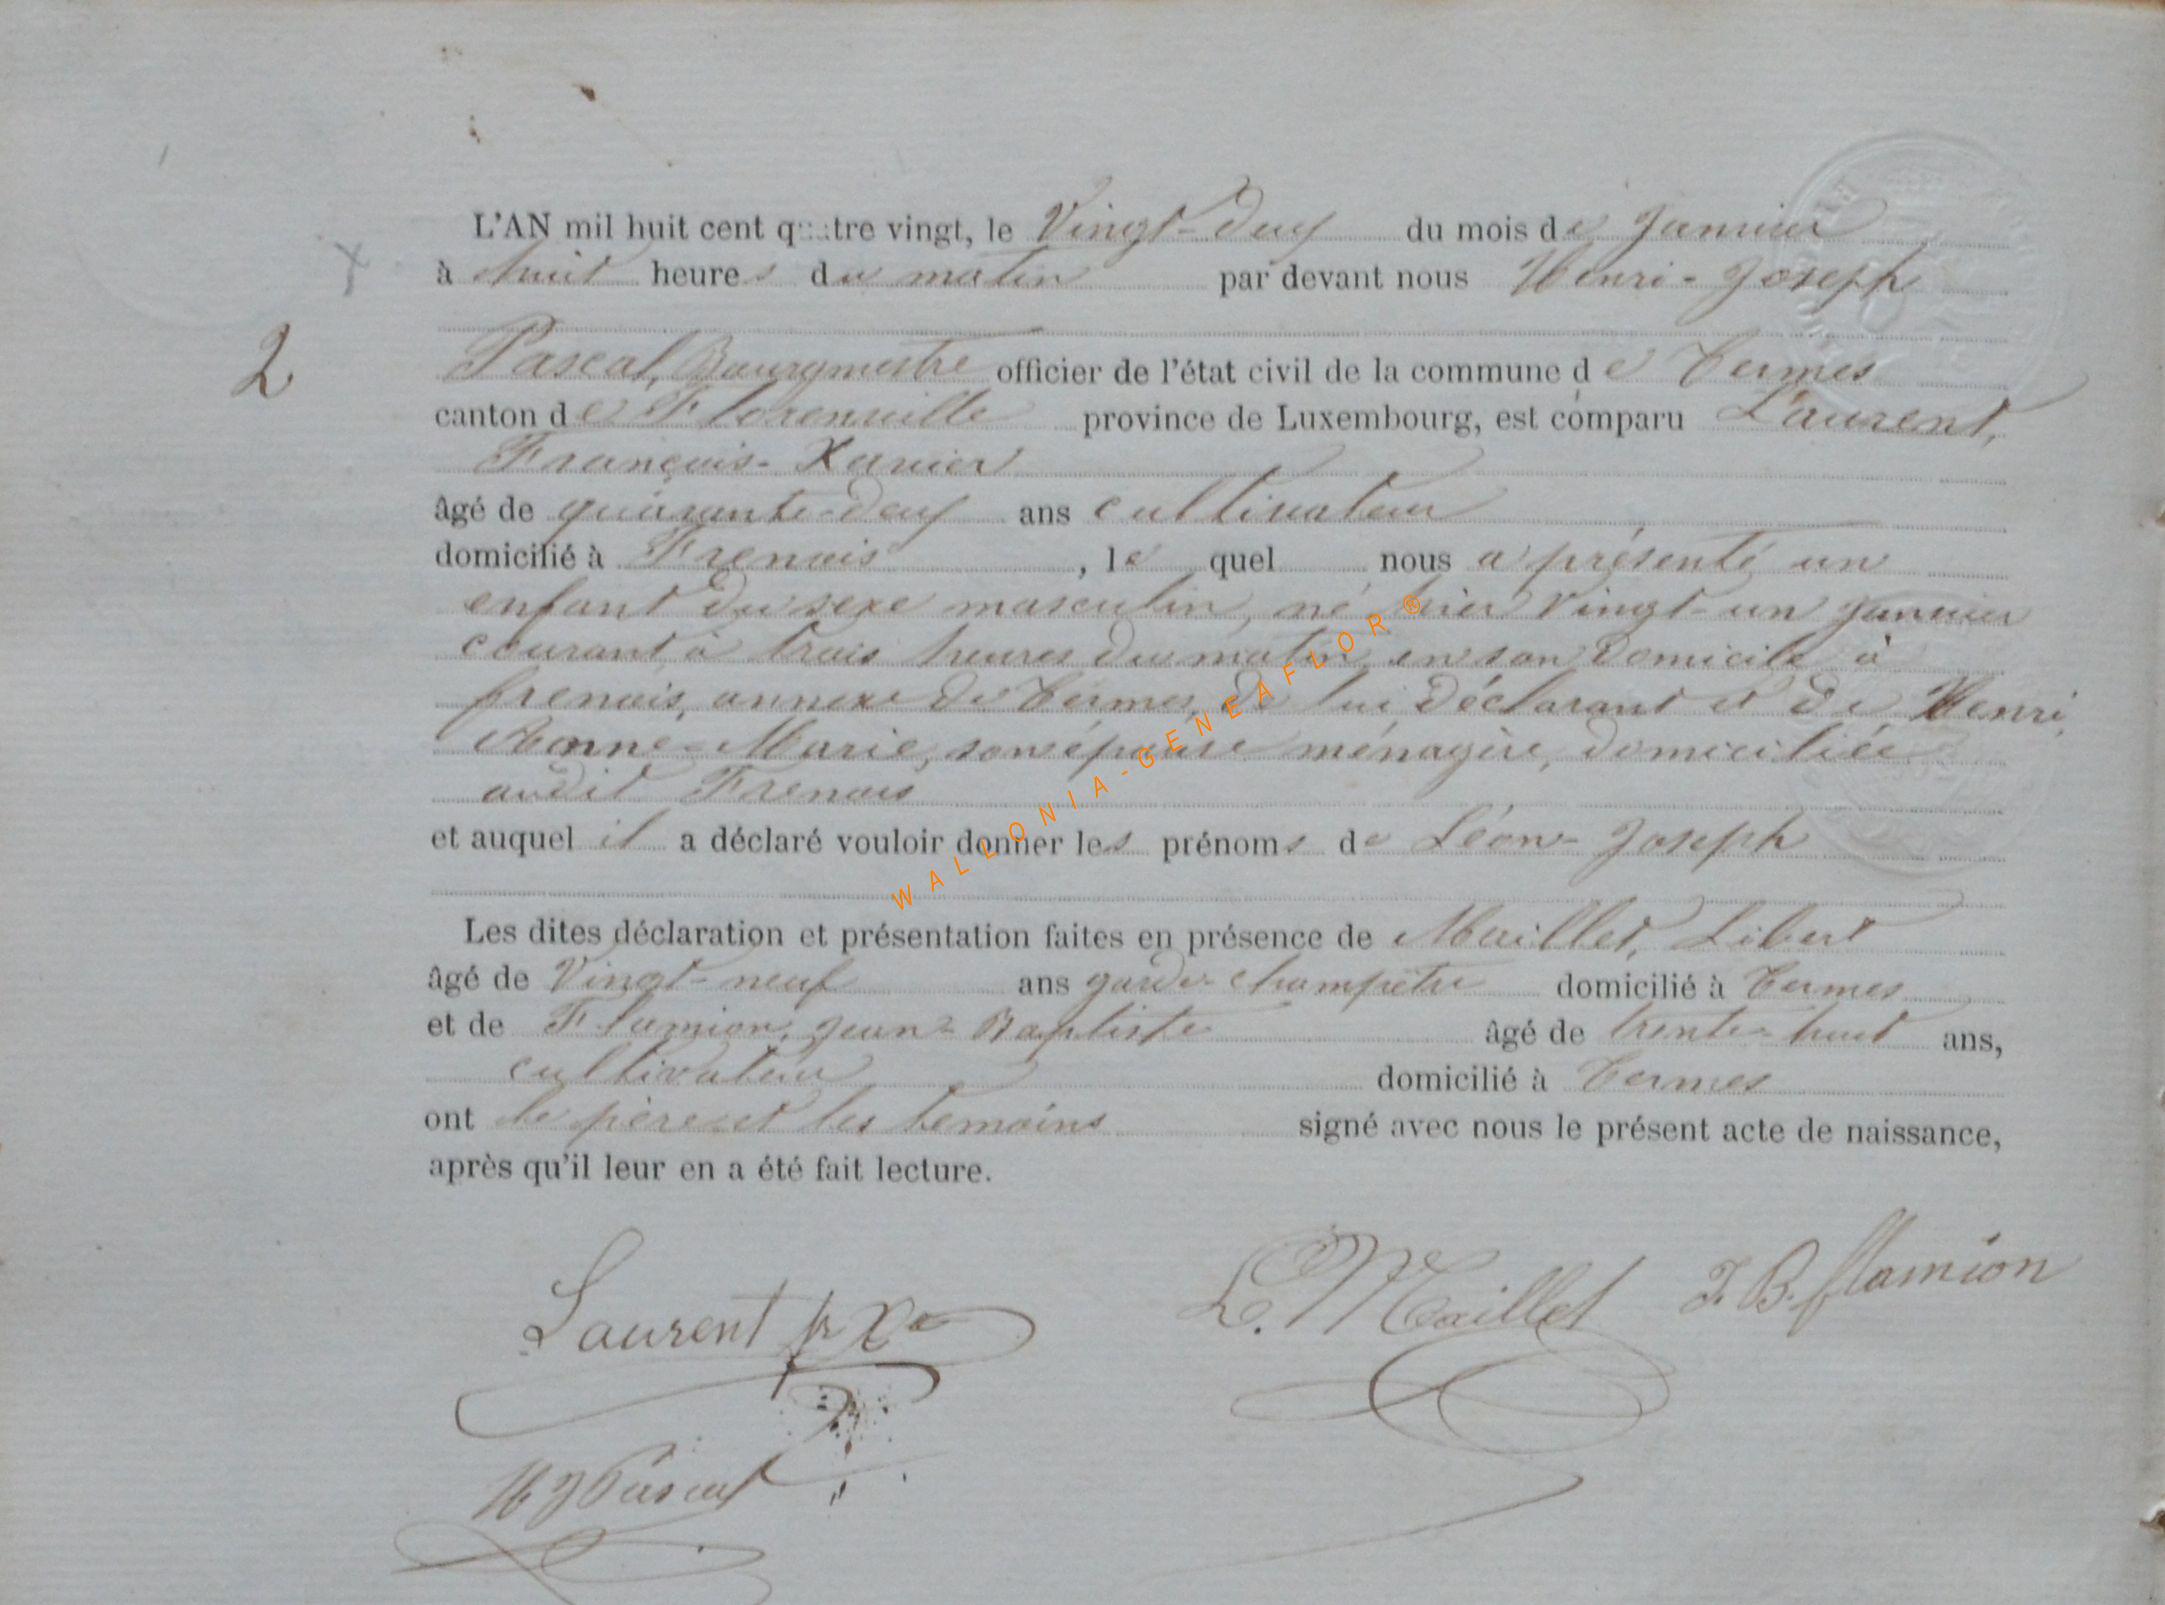 L'AN mil huit cent quatre vingt, le Vingt-deux du mois de Janvier
à huit heures du matin par devant nous Henri-Joseph
2
Pascal, Bourgmestre officier de l'état civil de la commune de Termes
canton de Florenville province de Luxembourg, est comparu Laurent,
François-Xavier
âgé de quarante-deux ans cultivateur
domicilié à Frenois, lequel nous a présenté un
enfant du sexe masculin, né hier vingt-un janvier
courant, à trois heures du matin, en son domicile à
frenois, annexe de Termes, de lui déclarant et de Henri,
Anne-Marie, son épouse ménagère, domiciliée
audit Frenois
et auquel il a déclaré vouloir donner les prénoms de Léon-Joseph
Les dites déclaration et présentation faites en présence de Maillet, Libert
âgé de Vingt-neuf ans garde-champêtre domicilié à Termes
et de Flamion, Jean-Baptiste âgé de trente-huit ans,
cultivateur domicilié à Termes
ont le père et les témoins signé avec nous le présent acte de naissance,
après qu'il leur en a été fait lecture.
Laurent fr Xer L. Maillet J. B. flamion
HJ Pascal
WALLONIA-GENEAFLOR ®